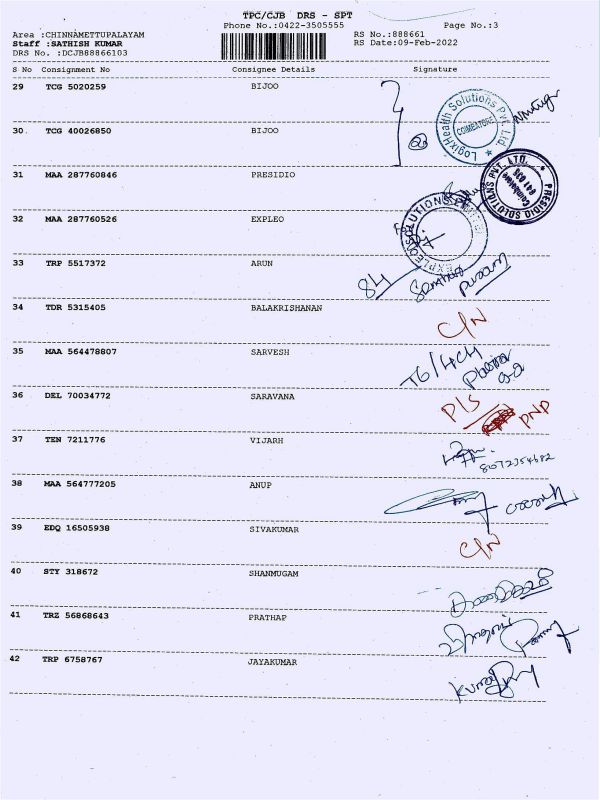 TPC/CJB DRS - SPT
Phone No.:0422-3505555 Page No.:3
Area :CHINNAMETTUPALAYAM RS No.:888661
Staff :SATHISH KUMAR RS Date:09-Feb-2022
DRS No. :DCJB88866103
S No Consignment No Consignee Details Signature
29 TCG 5020259 BIJOO
LogixHealth Solutions Pvt. Ltd.
COIMBATORE
30. TCG 40026850 BIJOO
31 MAA 287760846 PRESIDIO
PRESIDIO SOLUTIONS PVT. LTD.
Coimbatore
641 035
32 MAA 287760526 EXPLEO
EXPLEO SOLUTIONS
33 TRP 5517372 ARUN
84
34 TDR 5315405 BALAKRISHANAN
C/N
35 MAA 564478807 SARVESH
36 DEL 70034772 SARAVANA
P/S PNP
37 TEN 7211776 VIJARH
38 MAA 564777205 ANUP
39 EDQ 16505938 SIVAKUMAR
C/N
40 STY 318672 SHANMUGAM
41 TRZ 56868643 PRATHAP
42 TRP 6758767 JAYAKUMAR